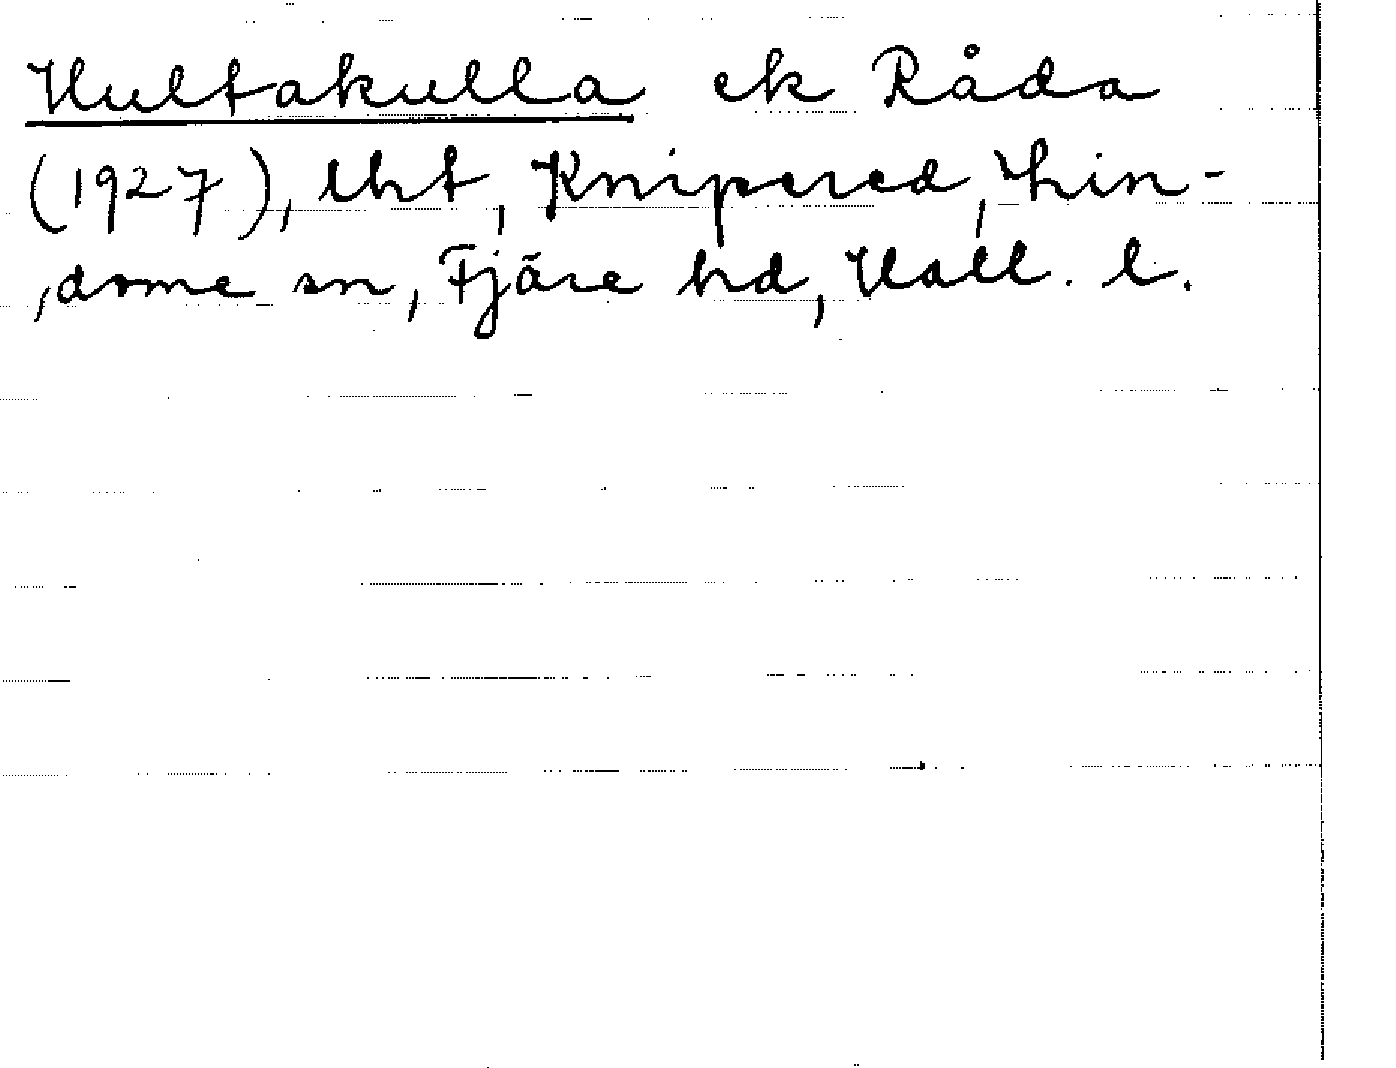 Hultakulla ek Råda
(1927), lht, Knipered, Lin-
,dome sn, Fjäre hd, Hall. l.